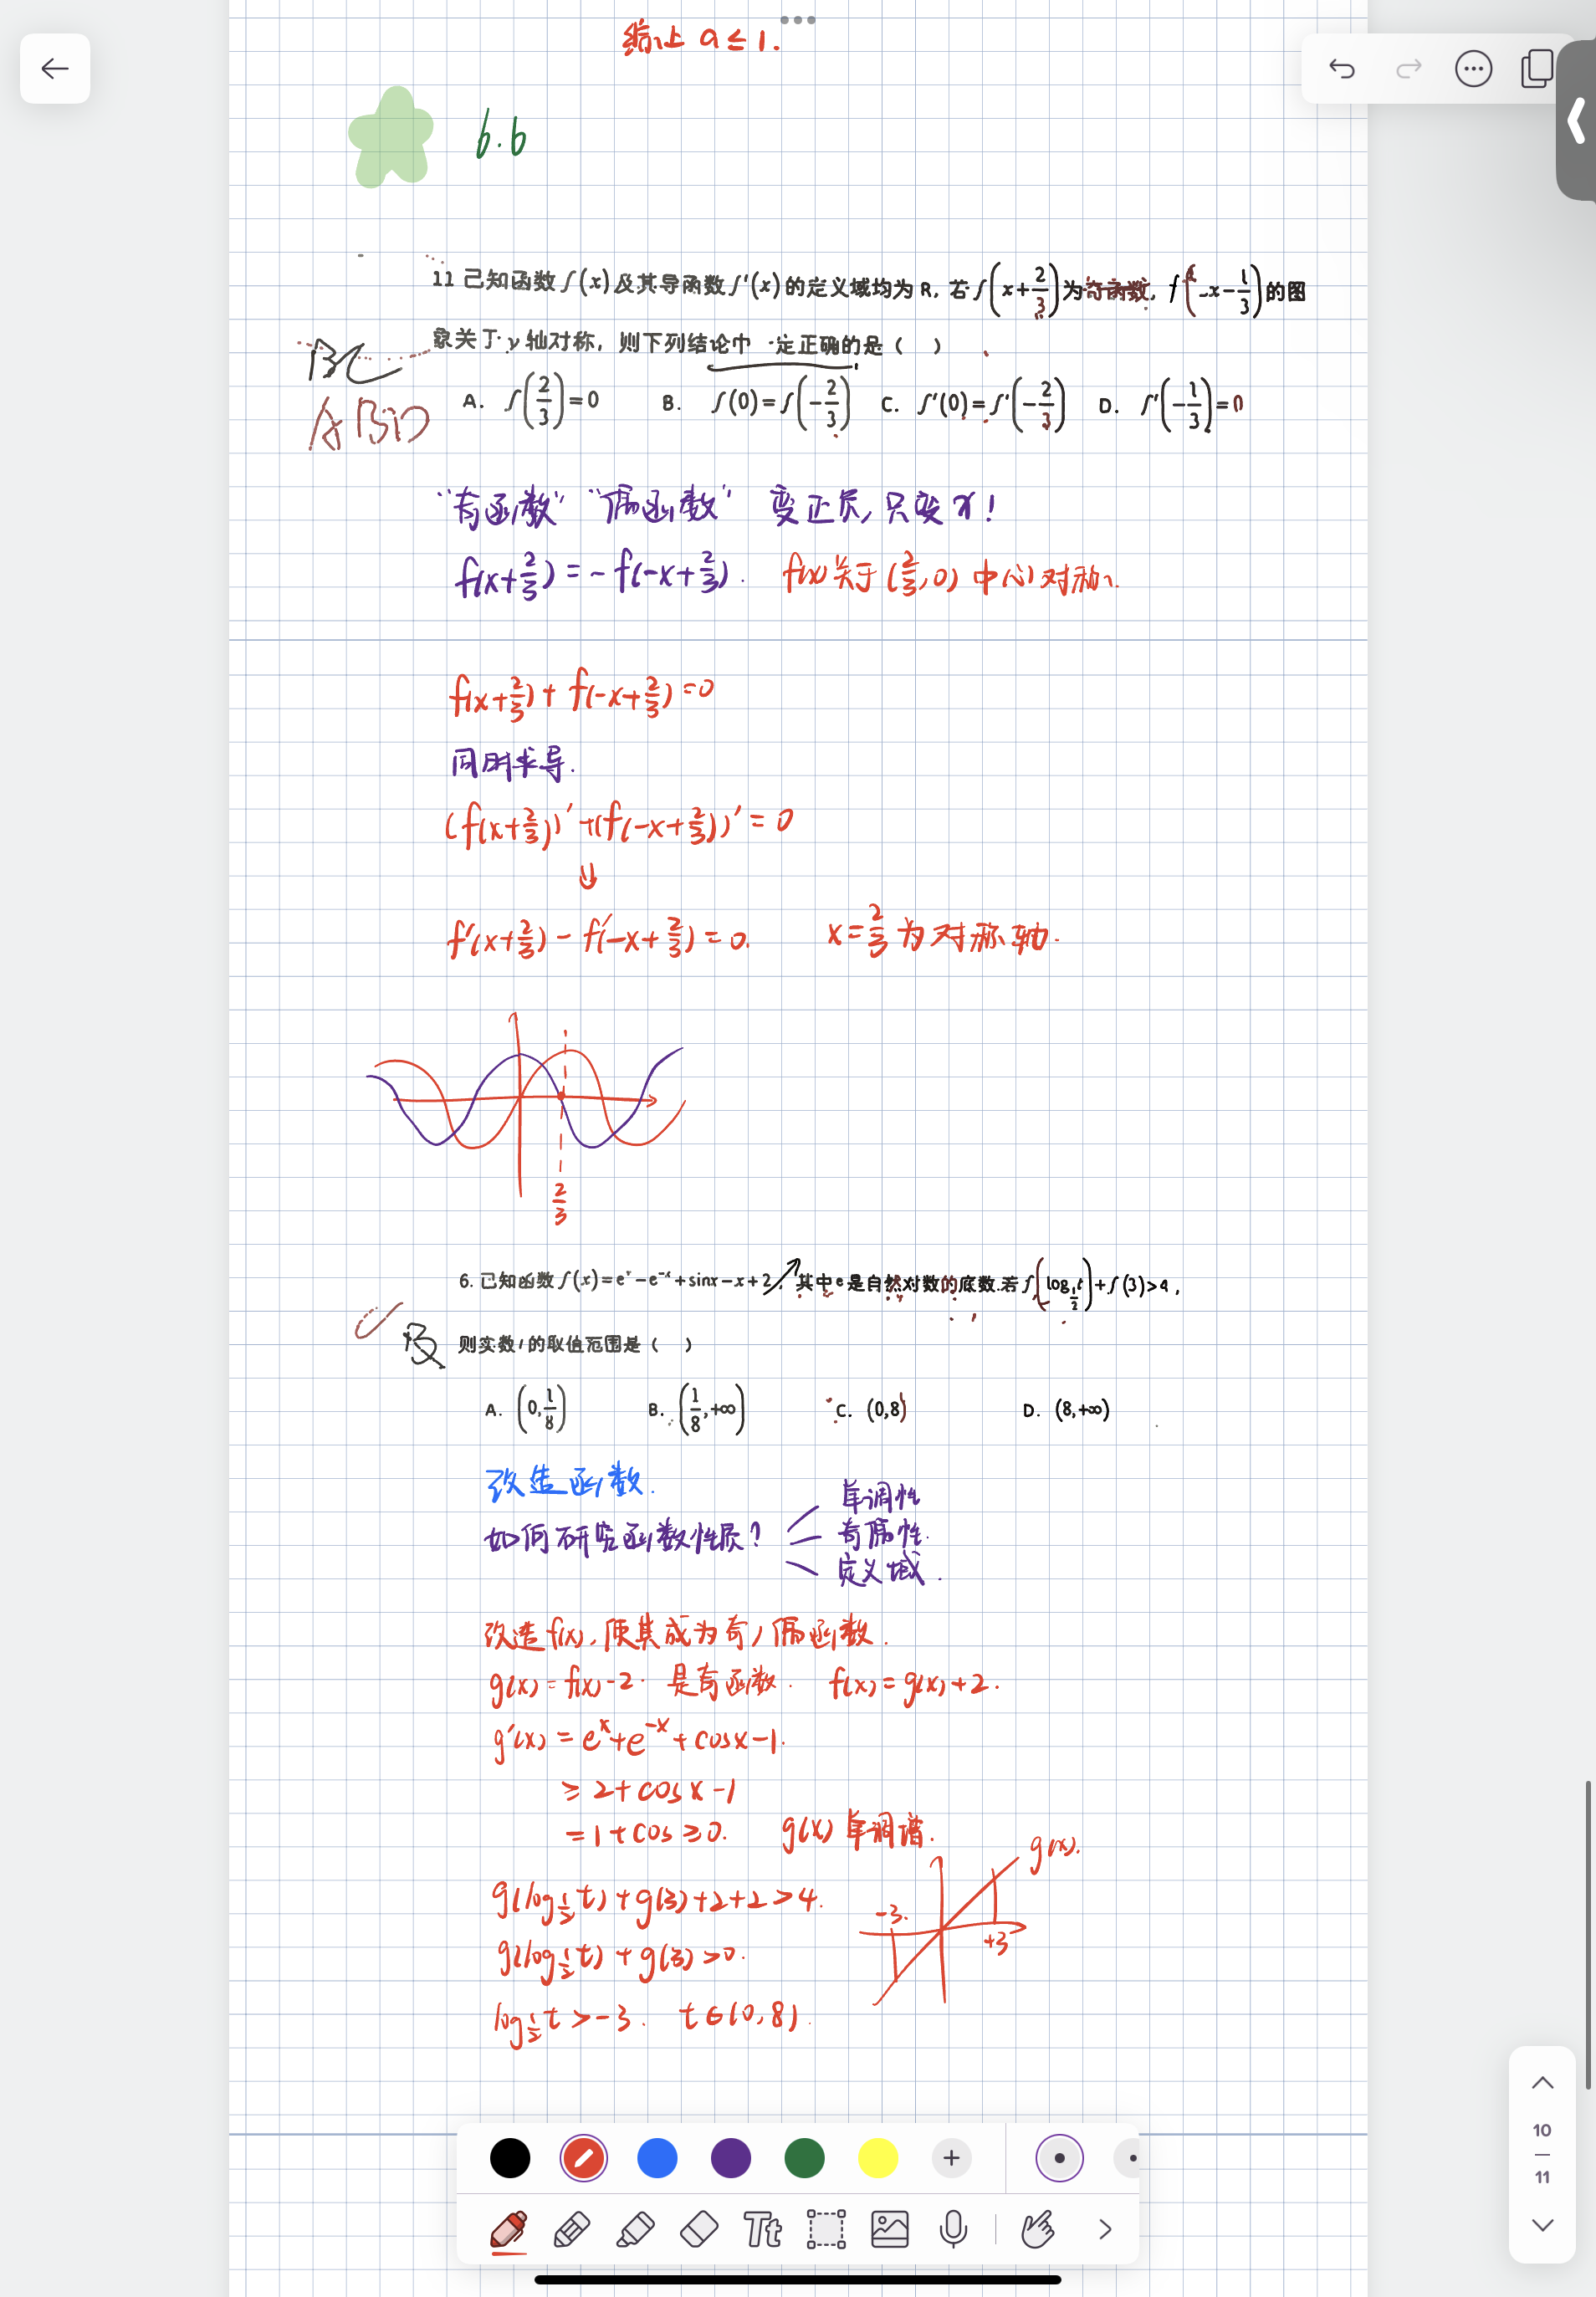 综上 a ≤ 1.
6.6
11 已知函数 f(x) 及其导函数 f'(x) 的定义域均为 R, 若 f(x+2/3) 为奇函数, f(-x-1/3) 的图
象关于 y 轴对称, 则下列结论中一定正确的是 ( )
BC
A. f(2/3)=0 B. f(0)=f(-2/3) C. f'(0)=f'(-2/3) D. f'(-1/3)=0
ABD
"奇函数" "偶函数" 变正负, 只变x!
f(x+2/3) = -f(-x+2/3). f(x)关于(2/3,0)中心对称.
f(x+2/3) + f(-x+2/3) =0
同时求导.
(f(x+2/3))' +(f(-x+2/3))' = 0
f'(x+2/3) - f'(-x+2/3) = 0. x=2/3 为对称轴.
2/3
6. 已知函数 f(x)=e^x-e^-x+sinx-x+2, 其中e是自然对数的底数.若 f(log_1/2 t)+f(3)>4,
B 则实数t的取值范围是 ( )
A. (0,1/8) B. (1/8,+∞) C. (0,8) D. (8,+∞)
改造函数.
单调性
如何研究函数性质? 奇偶性.
定义域.
改造f(x), 使其成为奇/偶函数.
g(x) = f(x)-2. 是奇函数. f(x)=g(x)+2.
g'(x) = e^x+e^-x+cosx-1.
≥ 2+cosx-1
=1+cos≥0. g(x)单调增.
g(x).
g(log_1/2 t)+g(3)+2+2>4.
-3.
+3
g(log_1/2 t)+g(3)>0.
log_1/2 t>-3. t∈(0,8).
10
11
Tt